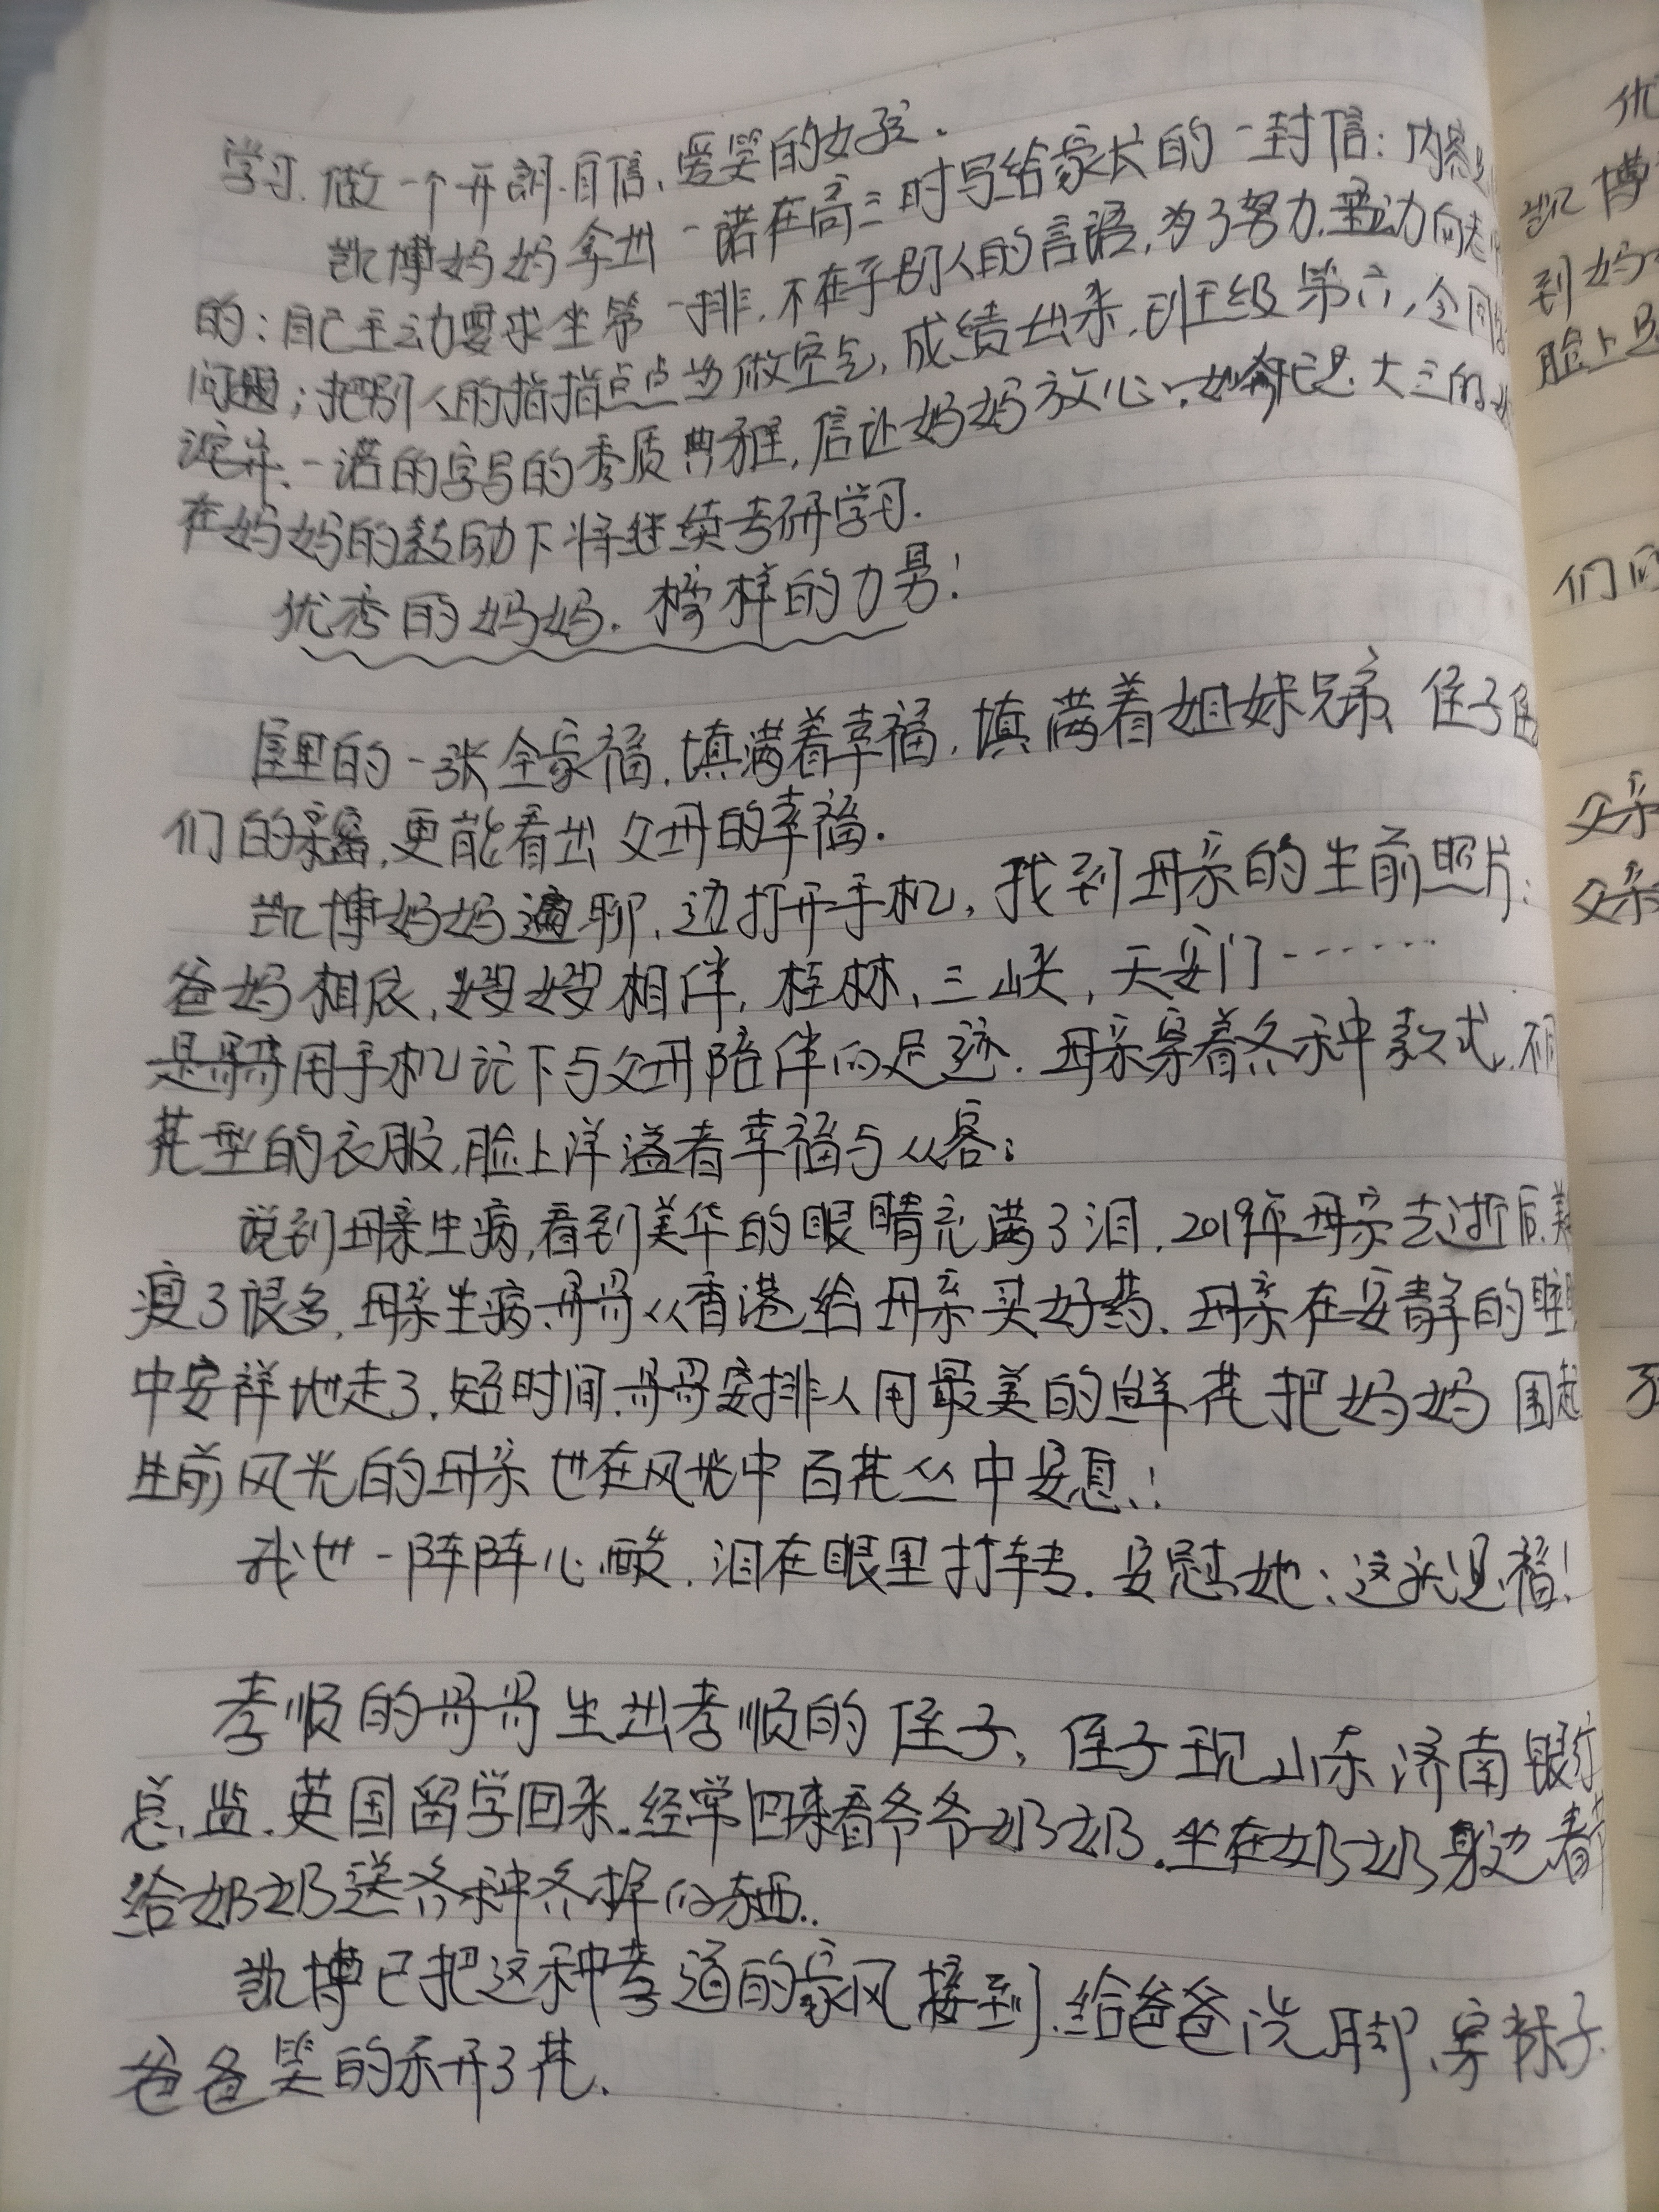 学习.做一个开朗.自信、爱笑的女孩.
凯博妈妈拿出一诺在高三时写给家长的一封信:内容是
的:自己主动要求坐第一排.不在乎别人的言语,为了努力.主动向老
问题;把别人的指指点点当做空气,成绩出来.班级第六,全
一诺的字写的秀质典雅,信让妈妈放心.她已是大三的
在妈妈的鼓励下将继续考研学习.
优秀的妈妈.榜样的力男!
屋里的一张全家福.填满着幸福.填满着姐妹兄弟、侄子
们的幸福,更能看出父母的幸福.
凯博妈妈边聊,边打开手机,找到母亲的生前照片:
爸妈相依,嫂嫂相伴,桂林,三峡,天安门……
是哥哥用手机记下与父母陪伴的足迹.母亲穿着各种款式.不同
花型的衣服,脸上洋溢着幸福与从容;
说到母亲生病,看到美华的眼睛充满了泪.2019年母亲去逝后.美
瘦了很多.母亲生病.哥哥从香港给母亲买好药.母亲在安静的睡眠
中安祥地走了.短时间.哥哥安排人用最美的鲜花把妈妈围起
生前风光的母亲也在风光中百花丛中安息!
我也一阵阵心酸.泪在眼里打转.安慰她:这就是福!
孝顺的哥哥生出孝顺的侄子,侄子现山东济南银行
总监.英国留学回来.经常回来看爷爷奶奶.坐在奶奶身边看
给奶奶送各种各样的东西..
凯博已把这种孝道的家风接到.给爸爸洗脚、穿袜子.
爸爸笑的乐开了花.
优
凯博
到妈
脸上
们
父亲
父亲